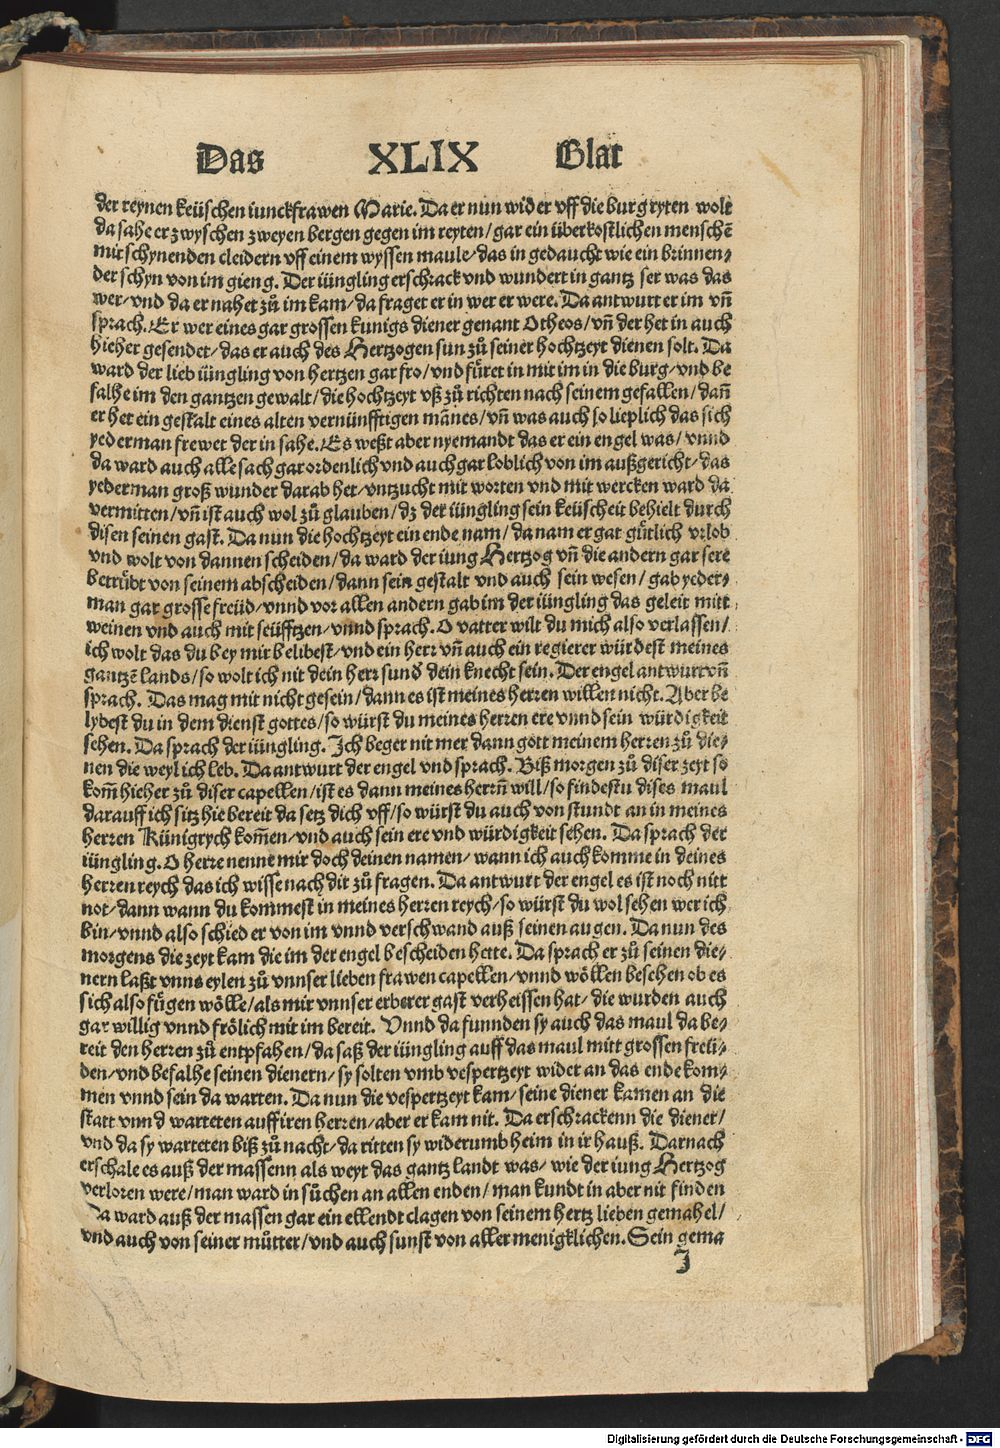 Das XLIX Blat
der reynen keüschen iunckfrawen Marie. Da er nun wider vff die burg ryten wolt
da sahe er zwyschen zweyen bergen gegen im reyten/ gar ein überkostlichen menschē
mit schynenden cleidern vff einem wyssen maule/ das in gedaucht wie ein brinnen⸗
der schyn von im gieng. Der iüngling erschrack vnd wundert in gantz ser was das
wer/ vnd da er nahet zů im kam/ da fraget er in wer er were. Da antwurt er im vñ
sprach. Er wer eines gar grossen kunigs diener genant Otheos/ vñ der het in auch
hieher gesendet/ das er auch des Hertzogen sun zů seiner hochtzeyt dienen solt. Da
ward der lieb iüngling von hertzen gar fro/ vnd fůret in mit im in die burg/ vnd be
falhe im den gantzen gewalt/ die hochtzeyt vß zů richten nach seinem gefallen/ dañ
er het ein gestalt eines alten vernünfftigen mānes/ vñ was auch so lieplich das sich
yederman frewet der in sahe. Es weßt aber nyemandt das er ein engel was/ vnnd
da ward auch alle sach gar ordenlich vnd auch gar loblich von im außgericht/ das
yederman groß wunder darab het/ vntzucht mit worten vnd mit wercken ward da
vermitten/ vñ ist auch wol zů glauben/ dz der iüngling sein keüscheit behielt durch
disen seinen gast. Da nun die hochtzeyt ein ende nam/ da nam er gar gůtlich vrlob
vnd wolt von dannen scheiden/ da ward der iung Hertzog vñ die andern gar sere
betrůbt von seinem abscheiden/ dann sein gestalt vnd auch sein wesen/ gab yeder⸗
man gar grosse freüd/ vnnd vor allen andern gab im der iüngling das geleit mitt
weinen vnd auch mit seüfftzen/ vnnd sprach. O vatter wilt du mich also verlassen/
ich wolt das du bey mir belibest/ vnd ein herr vñ auch ein regierer würdest meines
gantzē lands/ so wolt ich nit dein herr sunď dein knecht sein. Der engel antwurt vñ
sprach. Das mag mit nicht gesein/ dann es ist meines herren willen nicht. Aber be
lybest du in dem dienst gottes/ so würst du meines herren ere vnnd sein würdigkeit
sehen. Da sprach der iüngling. Ich beger nit mer dann gott meinem herren zů die⸗
nen die weyl ich leb. Da antwurt der engel vnd sprach. Biß morgen zů diser zeyt so
kom̄ hieher zů diser capellen/ ist es dann meines herrñ will/ so findestu dises maul
darauff ich sitz hie bereit da setz dich vff/ so würst du auch von stundt an in meines
herren Künigrych kom̄en/ vnd auch sein ere vnd würdigkeit sehen. Da sprach der
iüngling. O herre nenne mir doch deinen namen/ wann ich auch komme in deines
herren reych das ich wisse nach dir zů fragen. Da antwurt der engel es ist noch nitt
not/ dann wann du kommest in meines herren reych/ so würst du wol sehen wer ich
bin/ vnnd also schied er von im vnnd verschwand auß seinen augen. Da nun des
morgens die zeyt kam die im der engel bescheiden hette. Da sprach er zů seinen die⸗
nern laßt vnns eylen zů vnnser lieben frawen capellen/ vnnd wöllen besehen ob es
sich also fůgen wölle/ als mir vnnser erberer gast verheissen hat/ die wurden auch
gar willig vnnd frölich mit im bereit. Vnnd da funnden sy auch das maul da be⸗
reit den herren zů entpfahen/ da saß der iüngling auff das maul mitt grossen freü⸗
den/ vnd befalhe seinen dienern/ sy solten vmb vespertzeyt wider an das ende kom⸗
men vnnd sein da warten. Da nun die vespertzeyt kam/ seine diener kamen an die
statt vnnd warteten auff iren herren/ aber er kam nit. Da erschrackenn die diener/
vnd da sy warteten biß zů nacht/ da ritten sy widerumb heim in ir hauß. Darnach
erschale es auß der massenn als weyt das gantz landt was/ wie der iung Hertzog
verloren were/ man ward in sůchen an allen enden/ man kundt in aber nit finden
Da ward auß der massen gar ein ellendt clagen von seinem hertz lieben gemahel/
vnd auch von seiner můtter/ vnd auch sunst von aller menigklichen. Sein gema
J
Digitalisierung gefördert durch die Deutsche Forschungsgemeinschaft - DFG